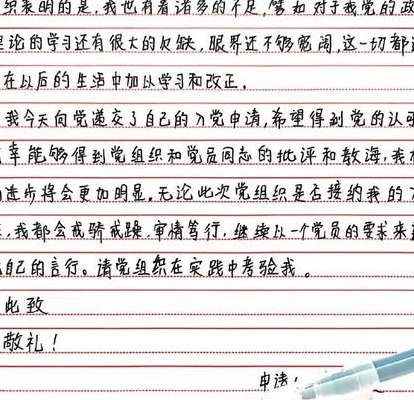 织表明的是,我也有着诸多的不足,譬如对于我党的政
理论的学习还有很大的欠缺,眼界还不够宽阔,这一切都
在以后的生活中加以学习和改正。
我今天向党递交了自己的入党申请,希望得到党的认
幸能够得到党组织和党员同志的批评和教诲,我
进步将会更加明显。无论此次党组织是否接纳我的入
,我都会戒骄戒躁,审情笃行,继续以一个党员的要求来
自己的言行。请党组织在实践中考验我。
此致
敬礼!
申请